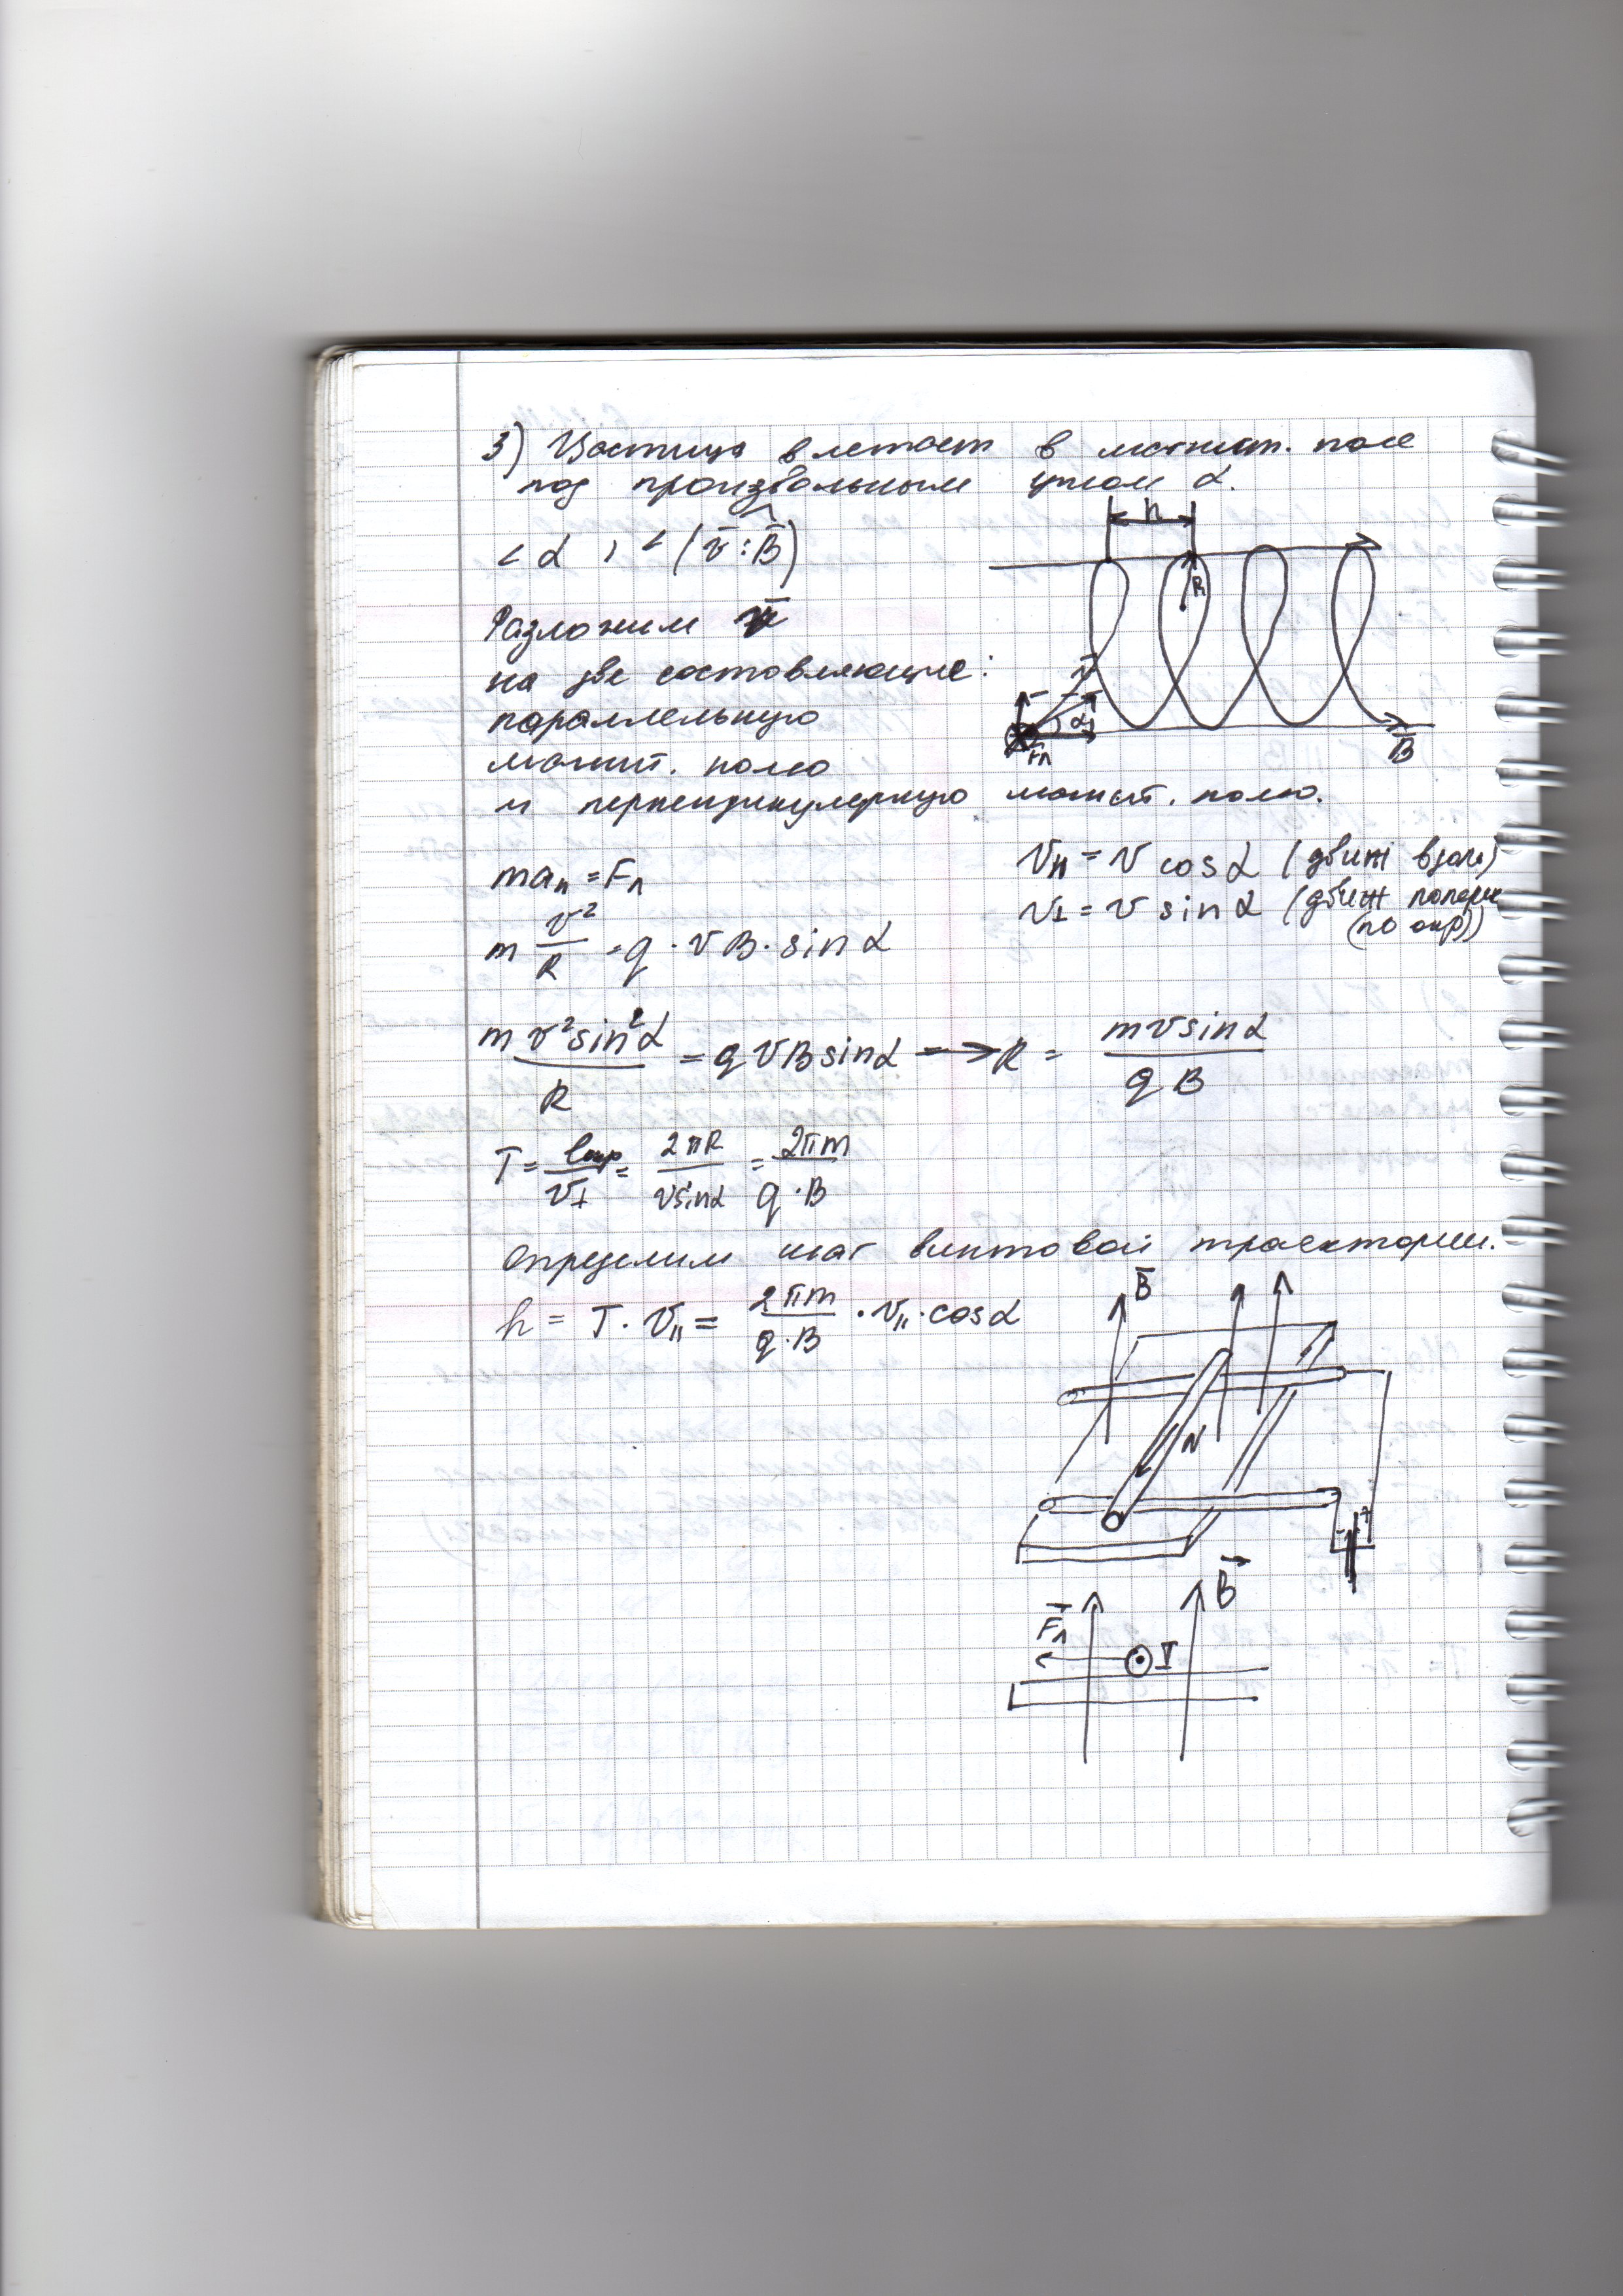 3) Частица влетает в магнит. поле
под произвольным углом α.
h
< α , < (v̄ : B̄)
R
Разложим v̄
на две составляющие:
v̄
параллельную
α
Fл
B̄
магнит. полю
и перпендикулярную магнит. полю.
v∥ = v cos α (движ вдоль)
maп = Fл
v⊥ = v sin α (движ поперек
(по окр))
m v²/R = q · v B · sin α
m v² sin² α / R = q v B sin α → R = m v sin α / q B
T = lокр / v⊥ = 2πR / v sin α = 2πm / q · B
Определим шаг винтовой траектории.
B̄
h = T · v∥ = 2πm / q · B · v∥ · cos α
N
- +
B⃗
F⃗л
I